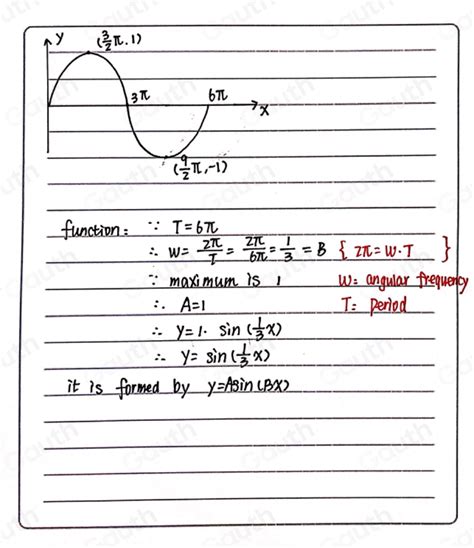 y
(3/2 π. 1)
3π
6π
x
(9/2 π, -1)
function: ∵ T = 6π
∴ W = 2π/T = 2π/6π = 1/3 = B { 2π = W·T }
∵ maximum is 1 W: angular frequency
∴ A=1 T: period
∴ y = 1· sin (1/3 x)
∴ y = sin (1/3 x)
it is formed by y=Asin(Bx)
Gauth